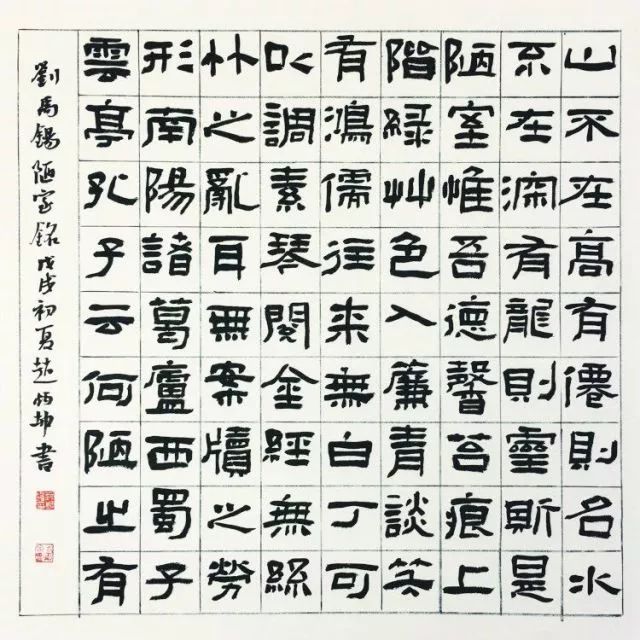 山不在高有僊則名水
不在深有龍則靈斯是
陋室惟吾德馨苔痕上
階綠艸色入簾青談笑
有鴻儒往来無白丁可
以調素琴閱金經無絲
竹之亂耳無案牘之勞
形南陽諸葛廬西蜀子
雲亭孔子云何陋之有
劉禹錫陋室銘戊戌初夏趙坤書